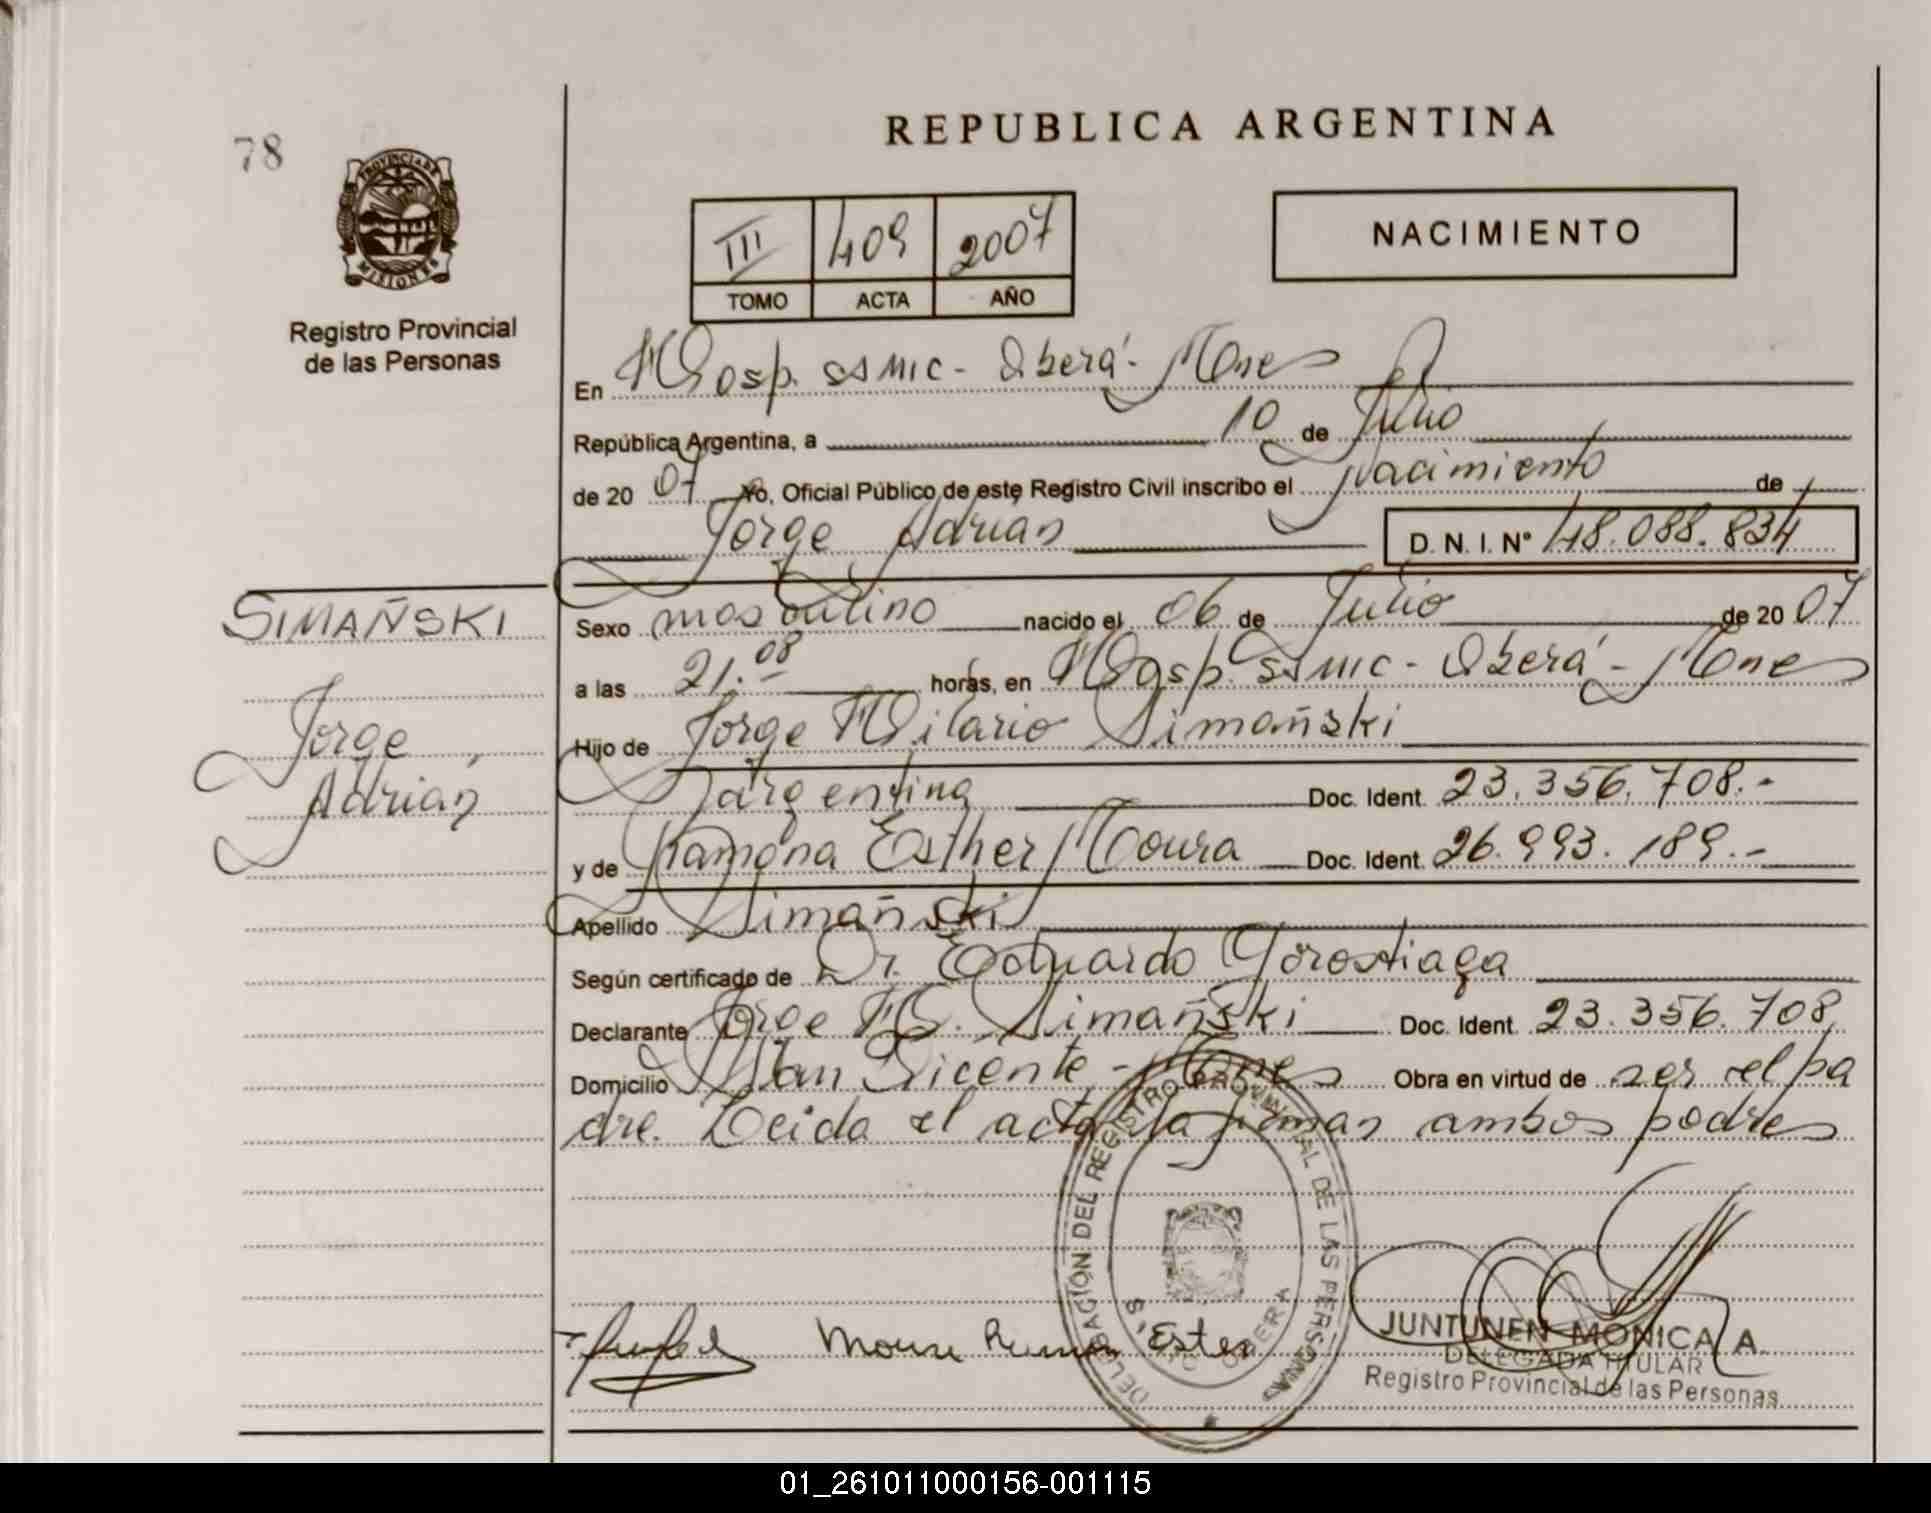 REPUBLICA ARGENTINA
78
PROVINCIA DE
MISIONES
Registro Provincial
de las Personas
III 409 2007
TOMO ACTA AÑO
NACIMIENTO
En Hosp. SSMIC - Oberá - Mnes
República Argentina, a 10 de Julio
de 20 07 Yo, Oficial Público de este Registro Civil inscribo el nacimiento de
Jorge Adrián D. N. I. N° 48.088.834
SIMAÑSKI
Jorge
Adrián
Sexo masculino nacido el 06 de Julio de 20 07
a las 21.08 horas, en Hosp. SSMIC - Oberá - Mnes
Hijo de Jorge Hilario Simañski
argentina Doc. Ident. 23.356.708.-
y de Ramona Esther Moura Doc. Ident. 26.993.189.-
Apellido Simañski
Según certificado de Dr. Eduardo Gorostiaga
Declarante Jorge H. Simañski Doc. Ident. 23.356.708
Domicilio San Vicente - Mnes Obra en virtud de ser el pa
dre. Leida el acta la firman ambos padres
DELEGACIÓN DEL REGISTRO PROVINCIAL DE LAS PERSONAS
OBERA
Ester
JUNTUNEN MONICA A.
DELEGADA TITULAR
Registro Provincial de las Personas
01_261011000156-001115